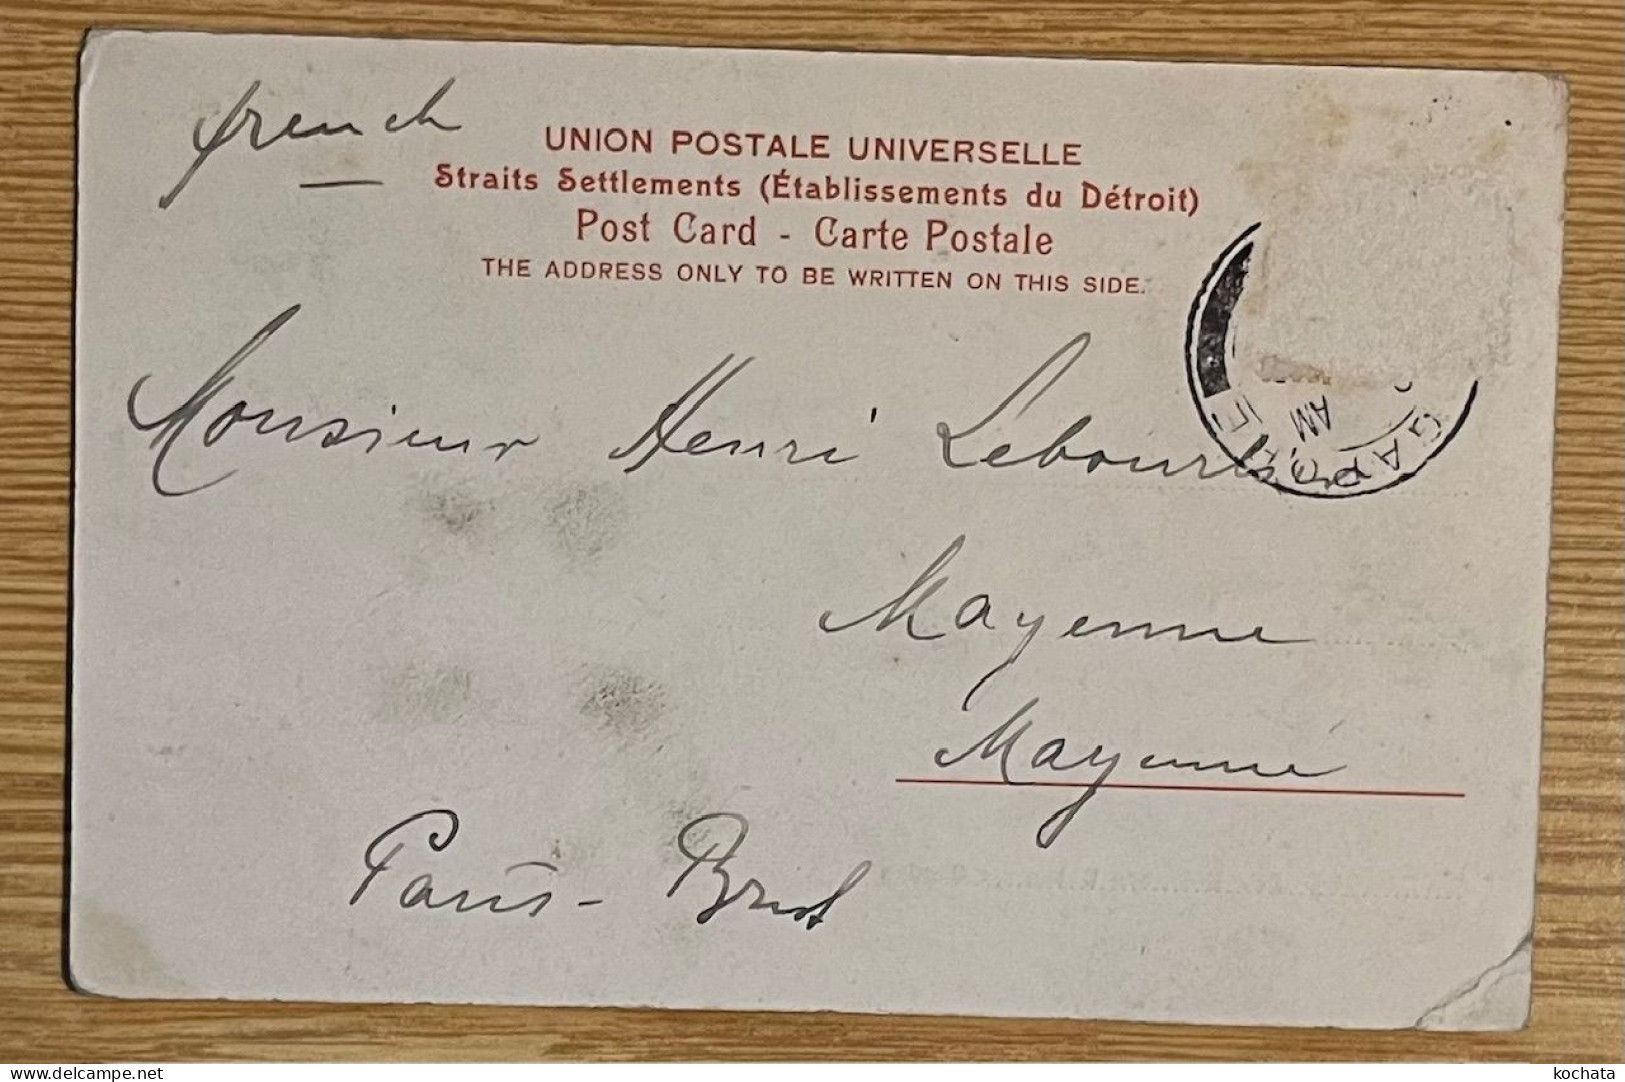 french
UNION POSTALE UNIVERSELLE
Straits Settlements (Établissements du Détroit)
Post Card - Carte Postale
THE ADDRESS ONLY TO BE WRITTEN ON THIS SIDE.
GAPORE
AM
Monsieur Henri
Mayenne
Mayenne
Paris - Brest
kochata